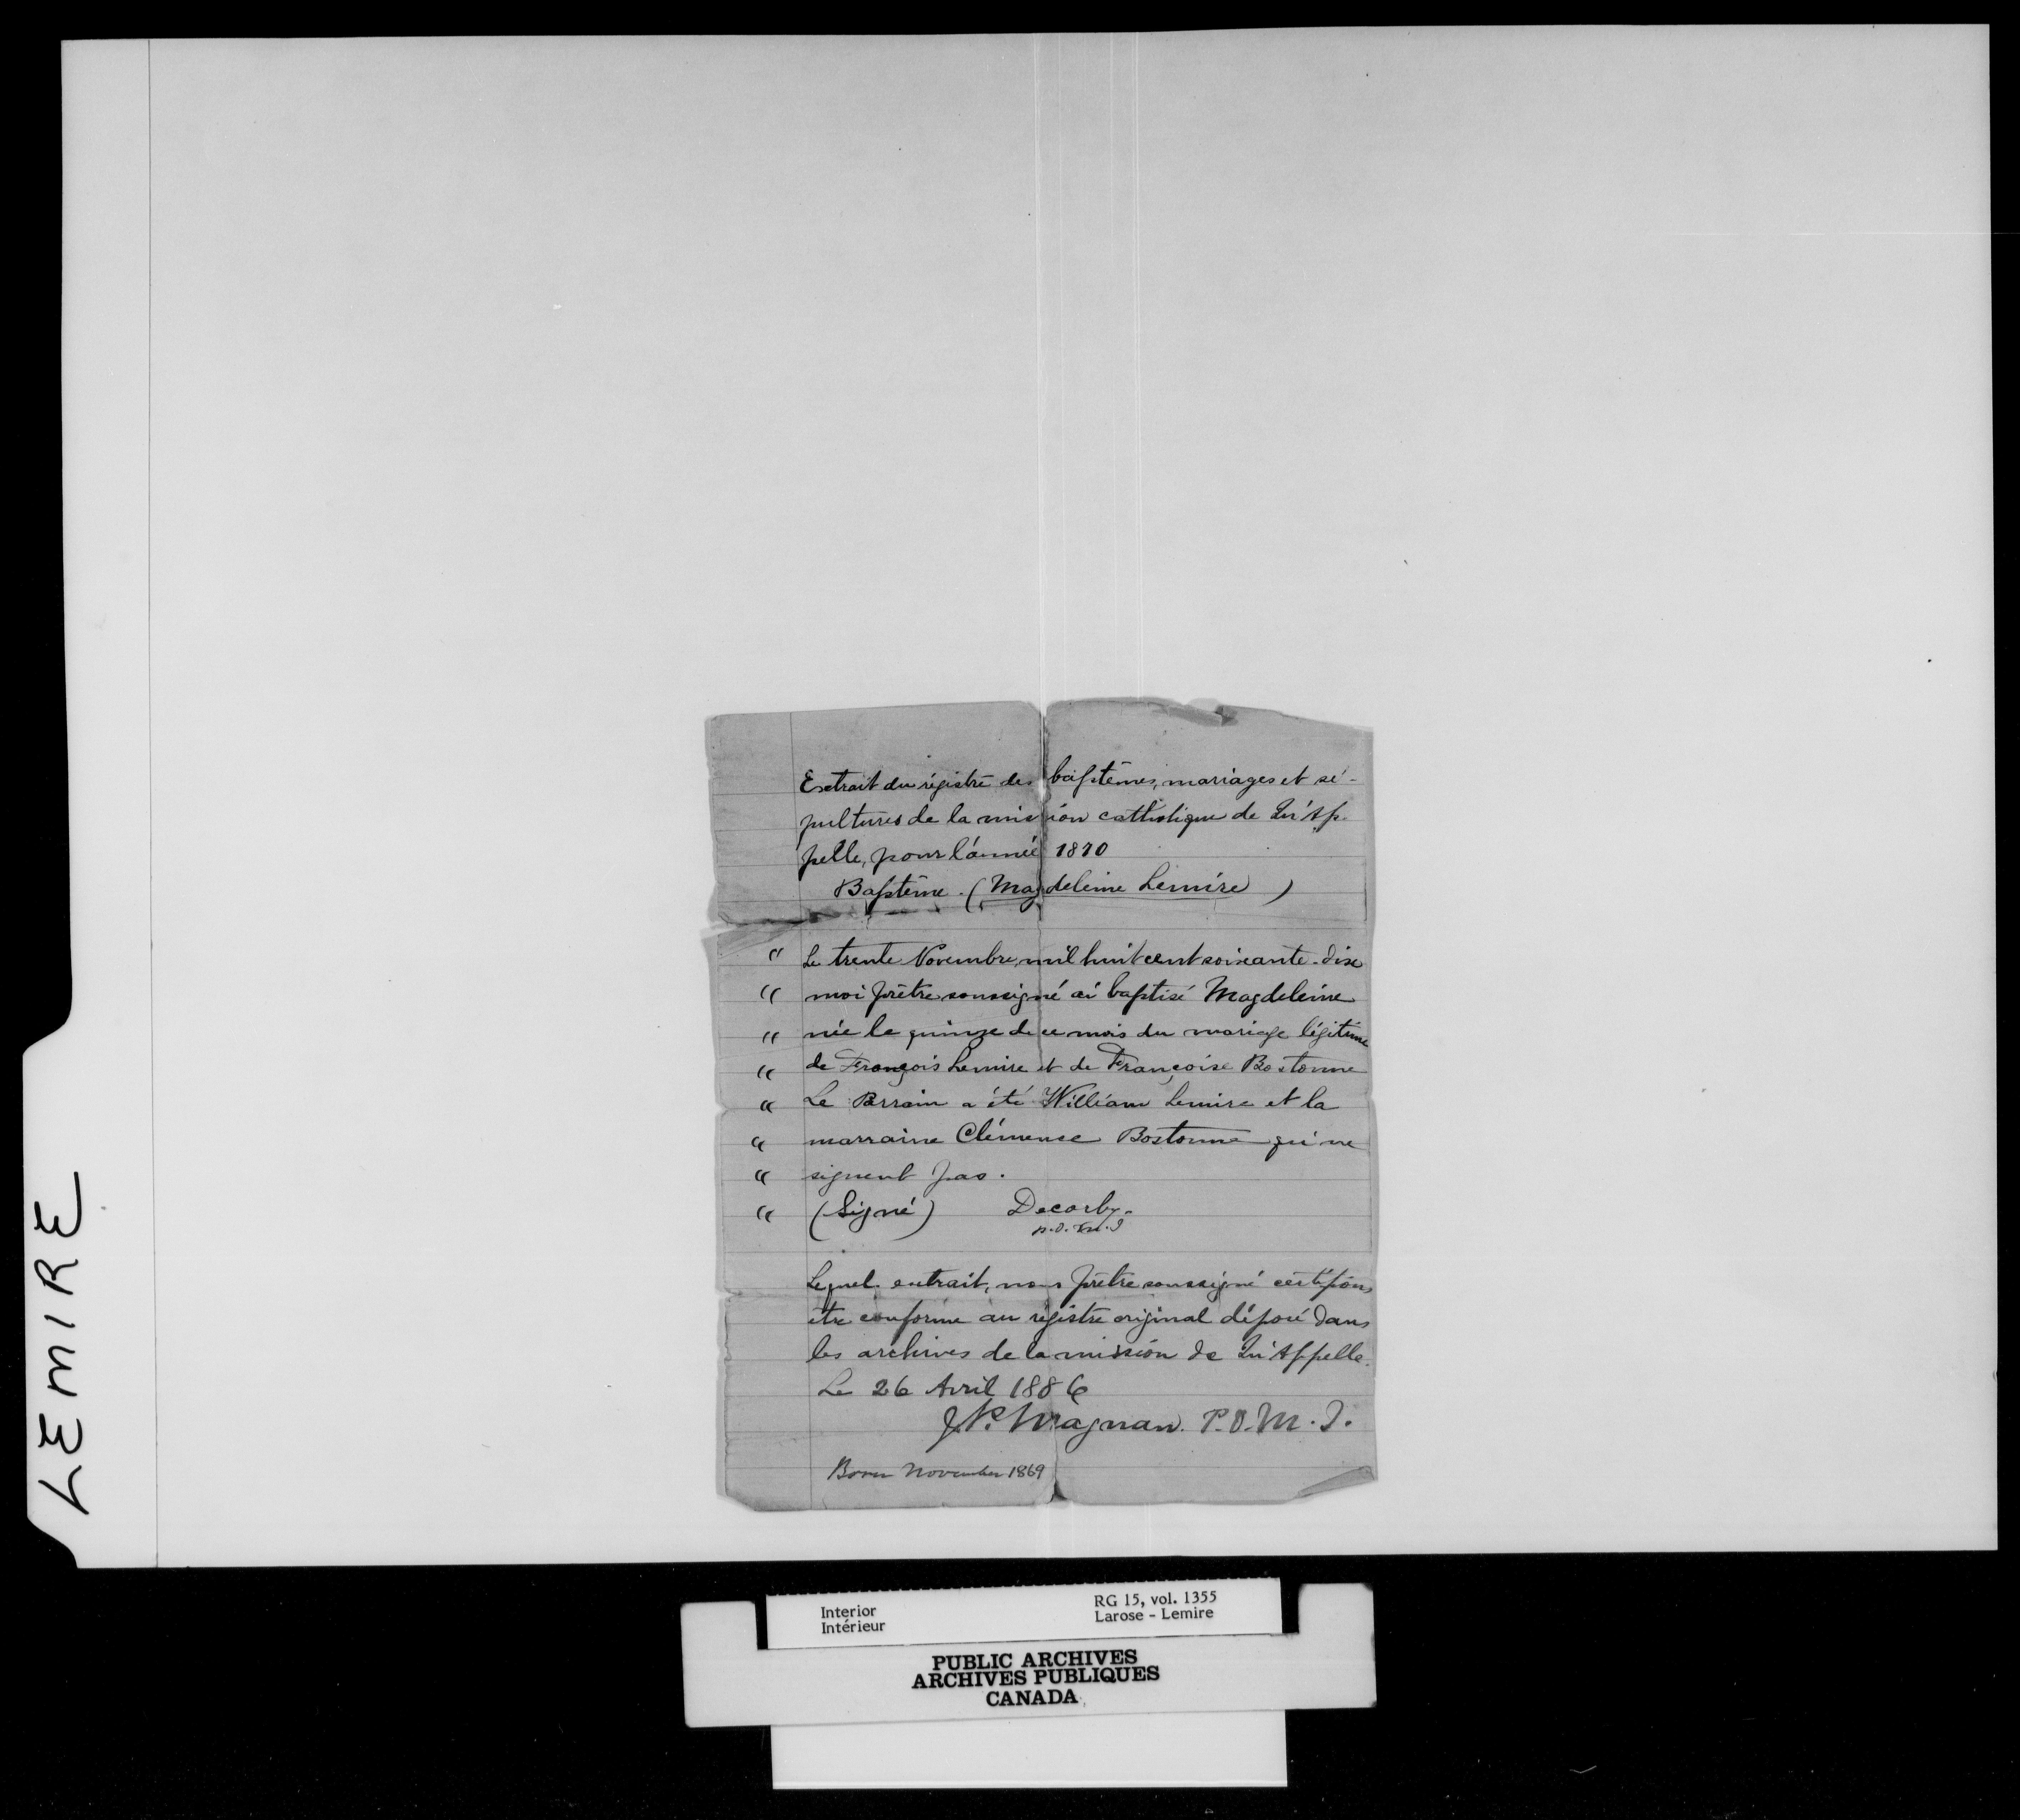 Extrait du régistre des baptêmes, mariages et sé-
pultures de la mission catholique de Qu'Ap-
pelle, pour l'année 1870
Baptême. (Magdeleine Lemire)
" Le trente Novembre, mil huit cent soixante-dix
" moi prêtre soussigné ai baptisé Magdeleine
" née le quinze de ce mois du mariage légitime
" de François Lemire et de Françoise Bostonne
" Le Parrain a été William Lemire et la
" marraine Clémence Bostonne qui ne
" signent pas.
" (Signé) Decorby.
p.o.m.I
Lequel extrait, nous prêtre soussigné certifions
être conforme au régistre original déposé dans
les archives de la mission de Qu'Appelle.
Le 26 Avril 1886
J.P. Magnan. P.O.M.I.
Born November 1869
LEMIRE
Interior
Intérieur
RG 15, vol. 1355
Larose - Lemire
PUBLIC ARCHIVES
ARCHIVES PUBLIQUES
CANADA